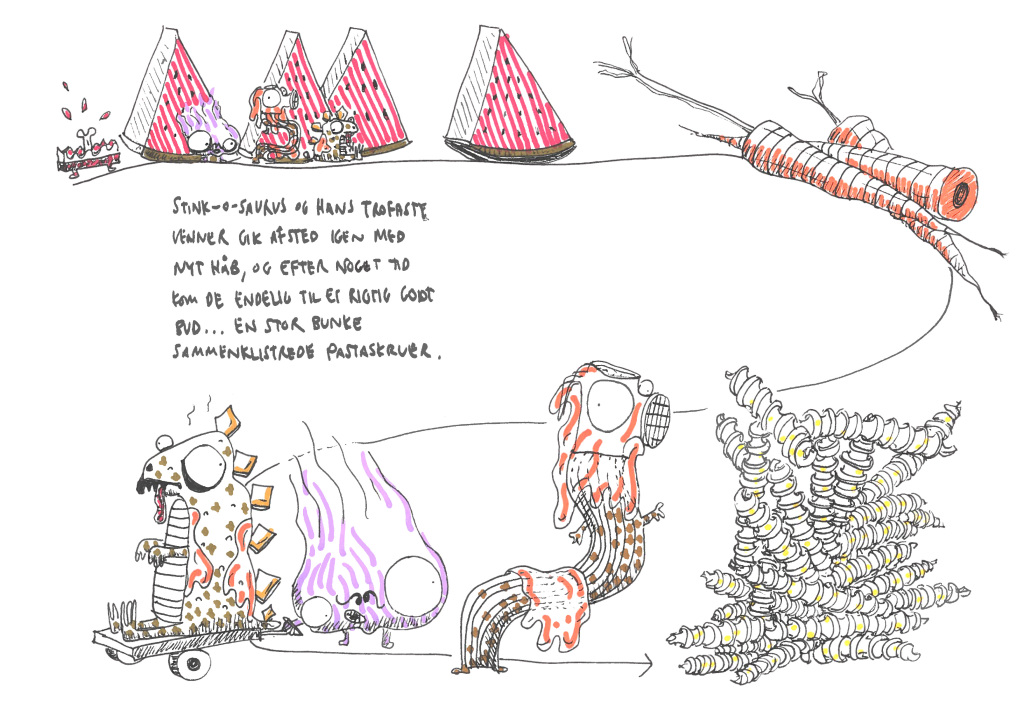 STINK-O-SAURUS OG HANS TROFASTE
VENNER GIK AFSTED IGEN MED
NYT HÅB, OG EFTER NOGET TID
KOM DE ENDELIG TIL ET RIGTIG GODT
BUD... EN STOR BUNKE
SAMMENKLISTREDE PASTASKRUER.